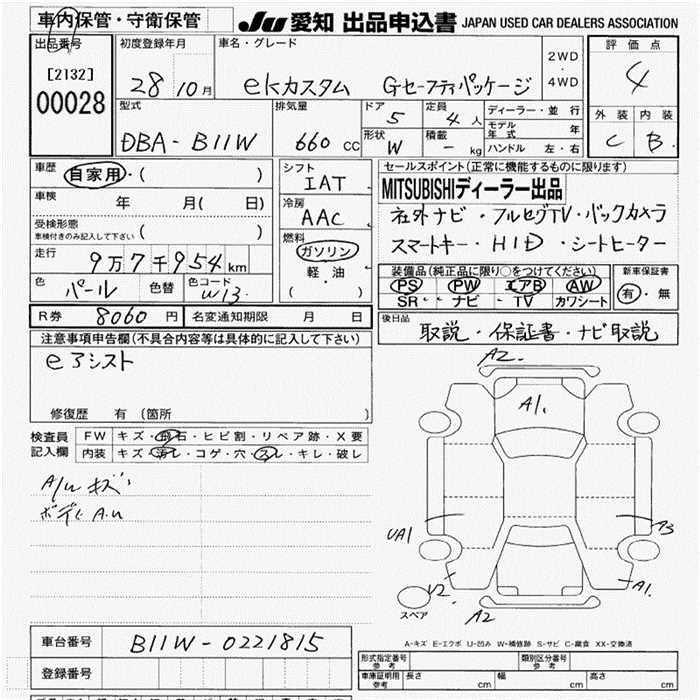 車内保管・守衛保管
JU 愛知 出品申込書 JAPAN USED CAR DEALERS ASSOCIATION
出品番号 初度登録年月 車名・グレード 評価点
[2132] 28 10月 ekカスタム Gセーフティパッケージ 2WD・4WD 4
00028
型式 排気量 ドア 5 定員 4人 ディーラー・並行 外装 内装
DBA-B11W 660cc 形状 W 積載 - kg モデル年式 年 C B
ハンドル 左・右
車歴 自家用・( ) シフト IAT セールスポイント(正常に機能するものに限ります)
車検 年 月( 日) 冷房 AAC MITSUBISHIディーラー出品
受検形態 社外ナビ・フルセグTV・バックカメラ
車検付きのみ記入して下さい ( ) 燃料 ガソリン スマートキー・HID・シートヒーター
走行 9万7千954km 軽・油 装備品(純正品に限り○をつけてください) 新車保証書
色 パール 色替 色コード W13 ( ) PS PW エアB AW 有・無
SR ナビ TV カワシート
R券 8060円 名変通知期限 月 日 後日品
取説・保証書・ナビ取説
注意事項申告欄(不具合内容等は具体的に記入して下さい)
eアシスト
A2
A1.
修復歴 有 (箇所 )
検査員 FW キズ・飛石・ヒビ割・リペア跡・X要
記入欄 内装 キズ・汚レ・コゲ・穴・スレ・キレ・破レ
A/u キズ
ボディ A.u
UA1 A3
U2 A1.
スペア A2
A-キズ E-エクボ U-凹み W-補修跡 S-サビ C-腐食 XX-交換済
車台番号 B11W-0221815
登録番号
形式指定番号 参考 類別区分番号 参考
車庫証明用 参考 長さ cm 幅 cm 高さ cm